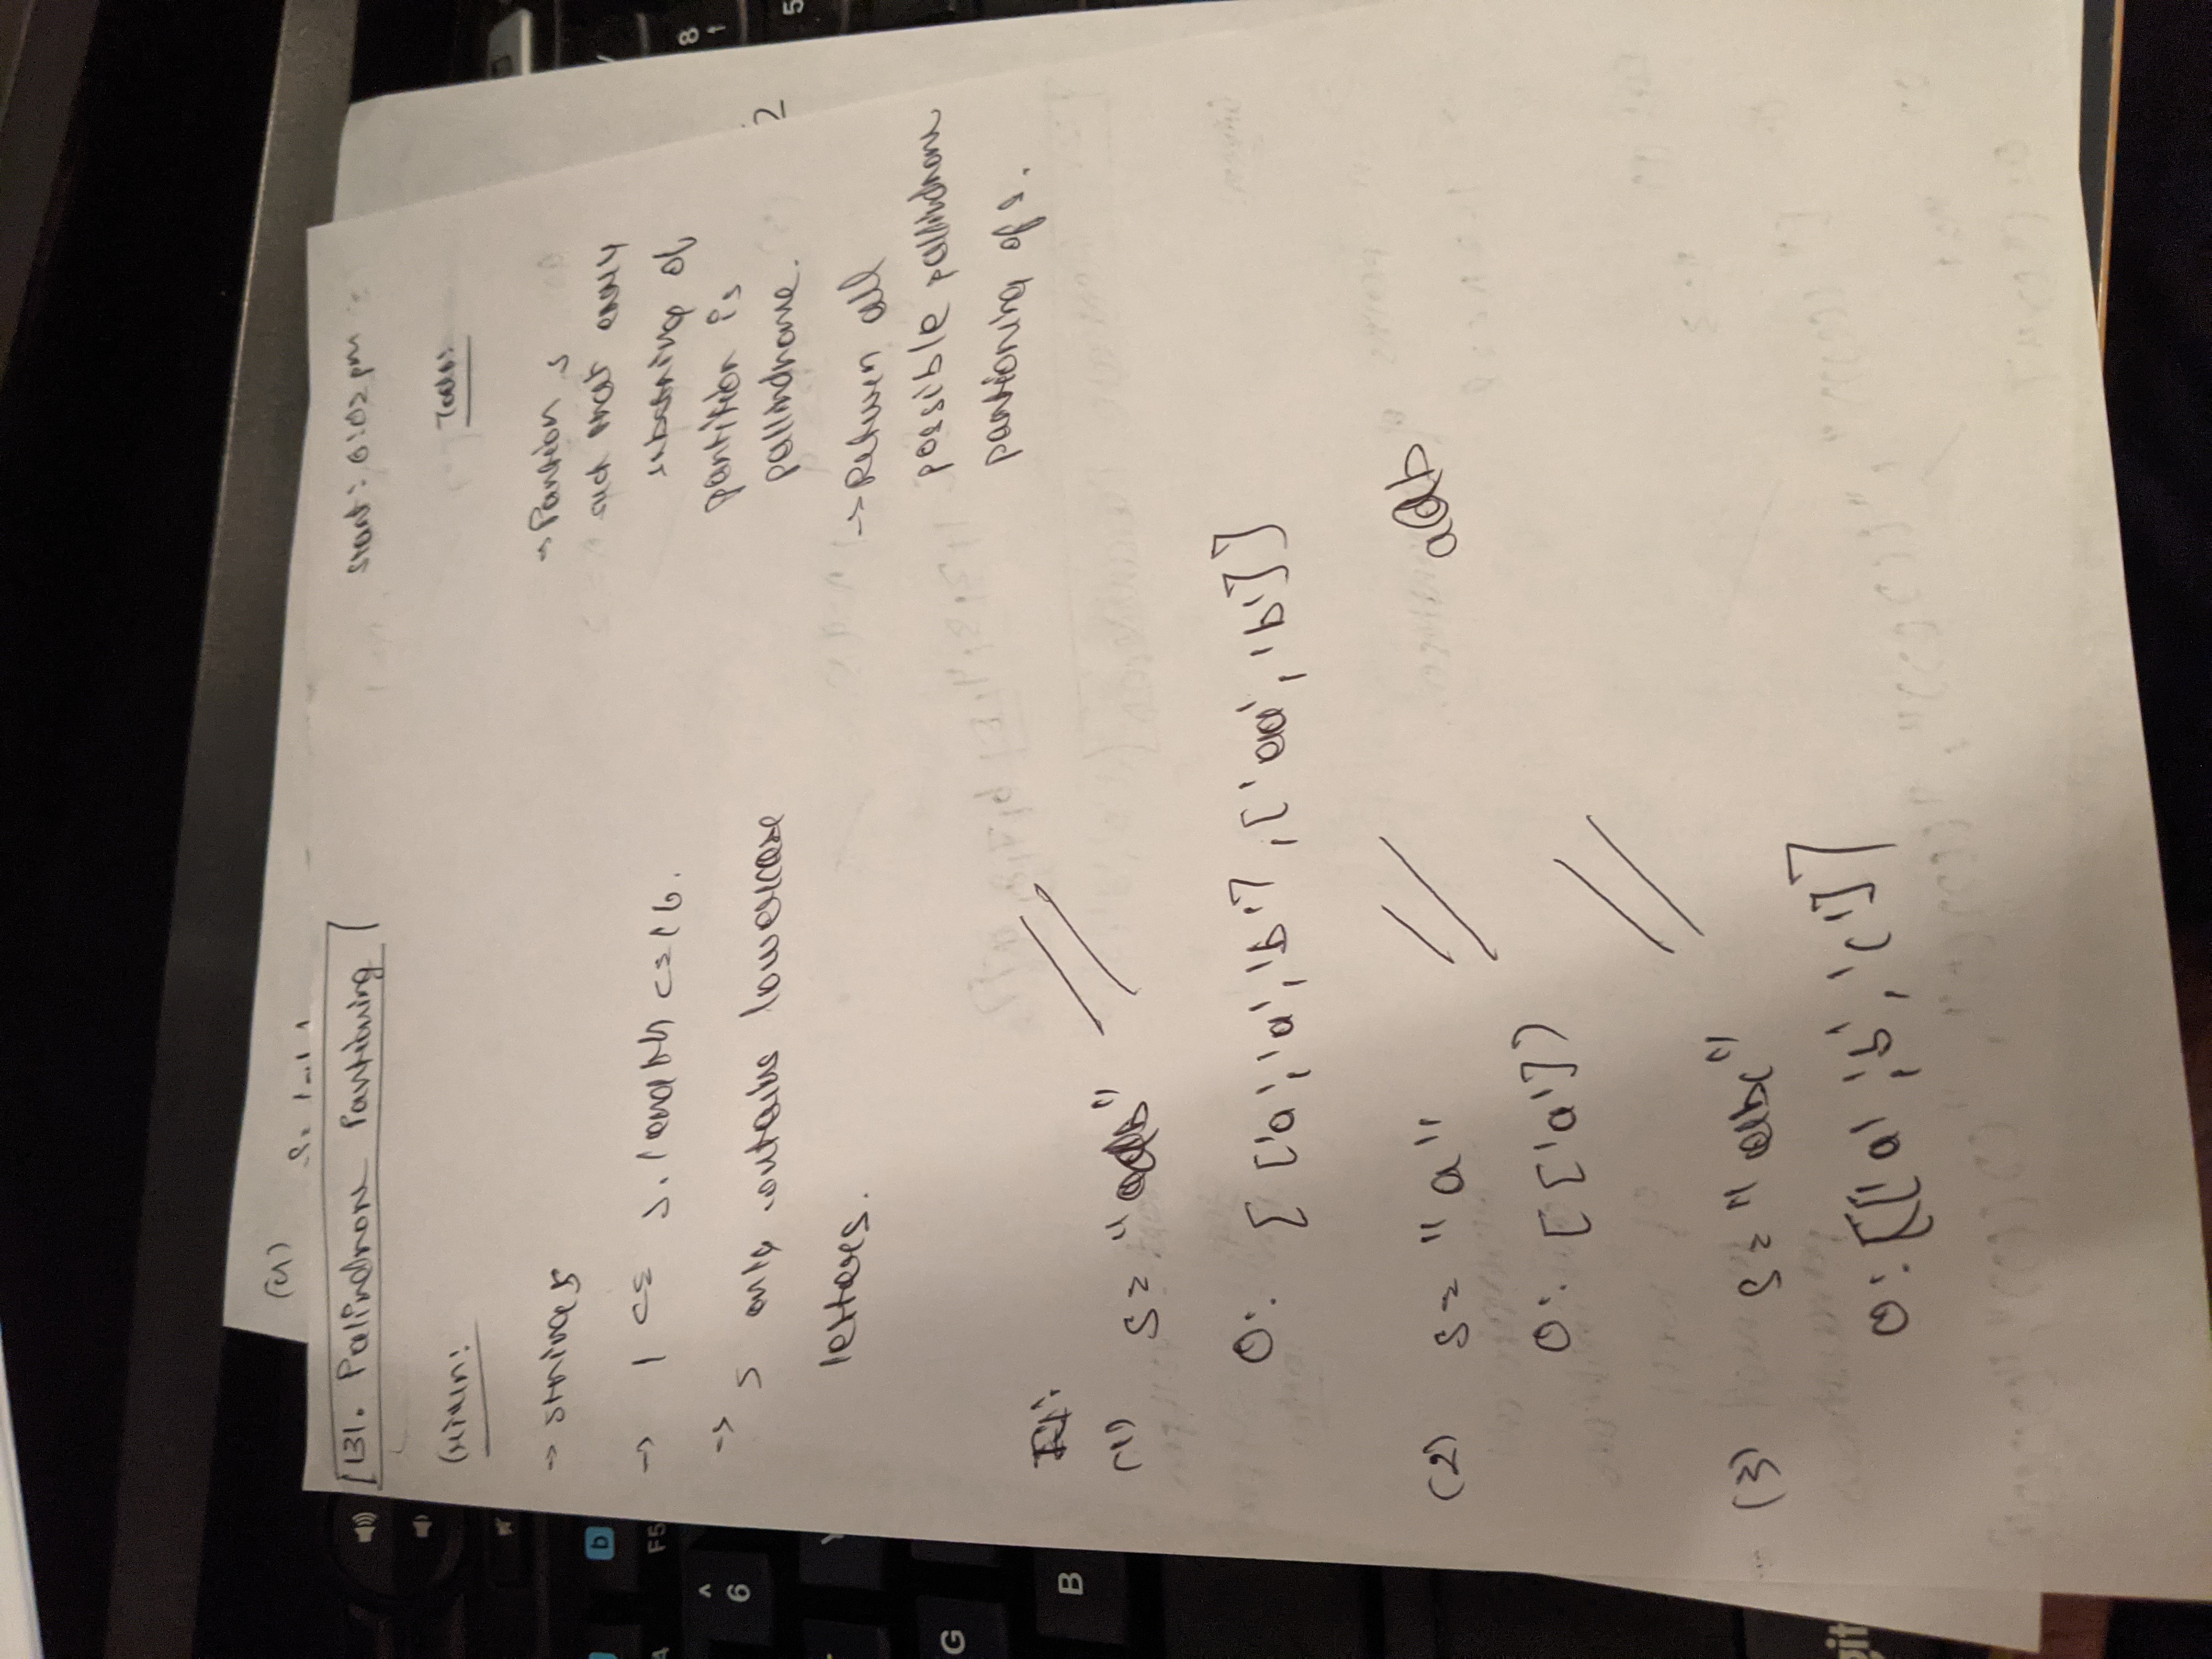 (4)
131. Palindrome Partioning
Start: 6:02 pm
Given:
Todo:
-> string s
-> 1 <= s.length <= 16.
-> s only contains lowercase
letters.
-> Partion s
such that every
substring of
partition is
pallindrome.
-> Return all
possible pallindrome
partioning of s.
2
Ex:
(1) s = "aab"
O: [ ['a','a','b'], ['aa','b']]
(2) s = "a"
aab
O: [['a']]
(3) s = "abc"
O: [['a','b','c']]
b
F5
^
6
G
B
git
8
5